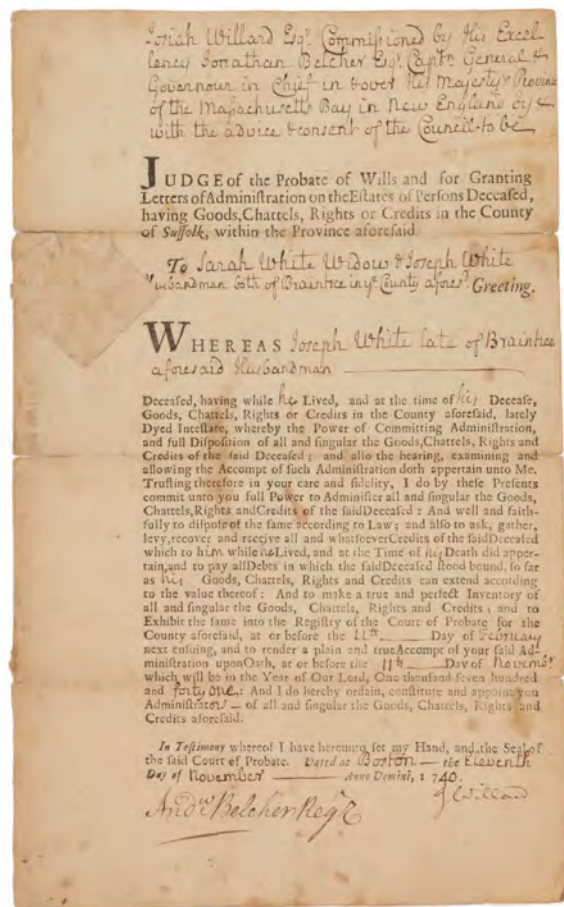 Josiah Willard Esqr. Commissioned by His Excel
lency Jonathan Belcher Esqr. Captn. General &
Governour in Chief in & over His Majesty's Province
of the Massachusetts Bay in New England by &
with the advice & consent of the Council to be
JUDGE of the Probate of Wills and for Granting
Letters of Administration on the Estates of Persons Deceased,
having Goods, Chattels, Rights or Credits in the County
of Suffolk, within the Province aforesaid.
To Sarah White Widow & Joseph White
Husbandman both of Braintree in ye. County afores.d Greeting.
WHEREAS Joseph White late of Braintree
aforesaid Husbandman
Deceased, having while he Lived, and at the time of his Decease,
Goods, Chattels, Rights or Credits in the County aforesaid, lately
Dyed Intestate, whereby the Power of Committing Administration,
and full Disposition of all and singular the Goods, Chattels, Rights and
Credits of the said Deceased; and also the hearing, examining and
allowing the Accompt of such Administration doth appertain unto Me.
Trusting therefore in your care and fidelity, I do by these Presents
commit unto you full Power to Administer all and singular the Goods,
Chattels, Rights and Credits of the said Deceased: And well and faith-
fully to dispose of the same according to Law; and also to ask, gather,
levy, recover and receive all and whatsoever Credits of the said Deceased
which to him while he Lived, and at the Time of his Death did apper-
tain, and to pay all Debts in which the said Deceased stood bound, so far
as his Goods, Chattels, Rights and Credits can extend according
to the value thereof: And to make a true and perfect Inventory of
all and singular the Goods, Chattels, Rights and Credits; and to
Exhibit the same into the Registry of the Court of Probate for the
County aforesaid, at or before the 11th Day of February
next ensuing, and to render a plain and true Accompt of your said Ad-
ministration upon Oath, at or before the 11th Day of Novembr
which will be in the Year of Our Lord, One thousand seven hundred
and forty one: And I do hereby ordain, constitute and appoint you
Administrators of all and singular the Goods, Chattels, Rights and
Credits aforesaid.
In Testimony whereof I have hereunto set my Hand, and the Seal of
the said Court of Probate. Dated at Boston the Eleventh
Day of November Anno Domini, 1740.
J Willard
Andw. Belcher Regr